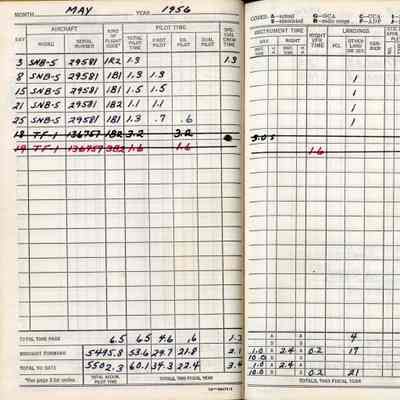 MONTH MAY YEAR 1956
CODES: A-actual G-GCA C-CCA
S-simulated
AIRCRAFT PILOT TIME
DAY MODEL SERIAL NUMBER KIND OF FLIGHT CODE* TOTAL PILOT TIME FIRST PILOT CO. PILOT DUAL PILOT SPECIAL CREW TIME
INSTRUMENT TIME NIGHT VFR TIME LANDINGS
3 SNB-5 29581 1R2 1.3 1.3
8 SNB-5 29581 1B1 1.3 1.3 1
15 SNB-5 29581 1B1 1.5 1.5 1
21 SNB-5 29581 1B2 1.1 1.1 1
25 SNB-5 29581 1B1 1.3 .7 .6 1
18 TF-1 136757 1B2 3.2 3.2 3.0 S
19 TF-1 136757 3B2 1.6 1.6 1.6
TOTAL TIME PAGE 6.5 6.5 4.6 .6 1.3 4
BROUGHT FORWARD 5495.8 53.6 29.7 21.8 2.1 1.0 2.4 0.2 17
10.0
TOTAL TO DATE 5502.3 60.1 34.3 22.4 3.4 1.0 2.4
10.0 0.2 21
*See page 2 for codes. TOTAL ACCUM. PILOT TIME TOTALS, THIS FISCAL YEAR TOTALS, THIS FISCAL YEAR